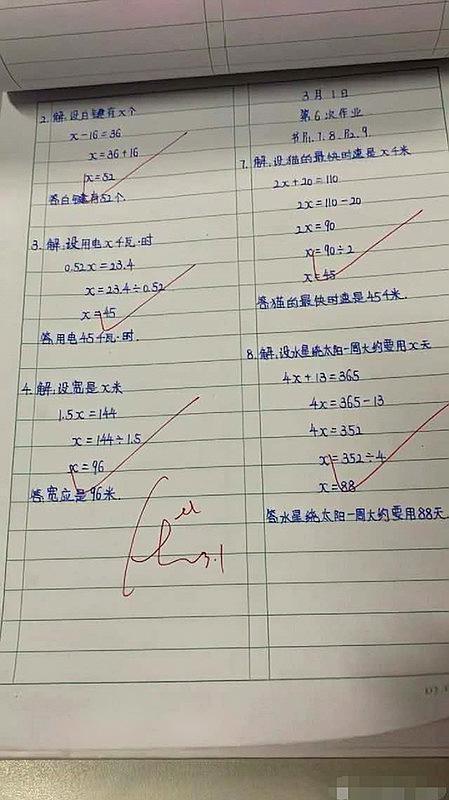 2. 解:设白键有x个
x-16=36
x=36+16
x=52
答:白键有52个.
3. 解:设用电x千瓦·时
0.52x=23.4
x=23.4÷0.52
x=45
答:用电45千瓦·时.
4. 解:设宽是x米
1.5x=144
x=144÷1.5
x=96
答:宽应是96米.
3.1
3月1日
第6次作业
书P1.7.8.P2.9
7. 解:设猫的最快时速是x千米
2x+20=110
2x=110-20
2x=90
x=90÷2
x=45
答:猫的最快时速是45千米.
8. 解:设水星绕太阳一周大约要用x天
4x+13=365
4x=365-13
4x=352
x=352÷4
x=88
答:水星绕太阳一周大约要用88天